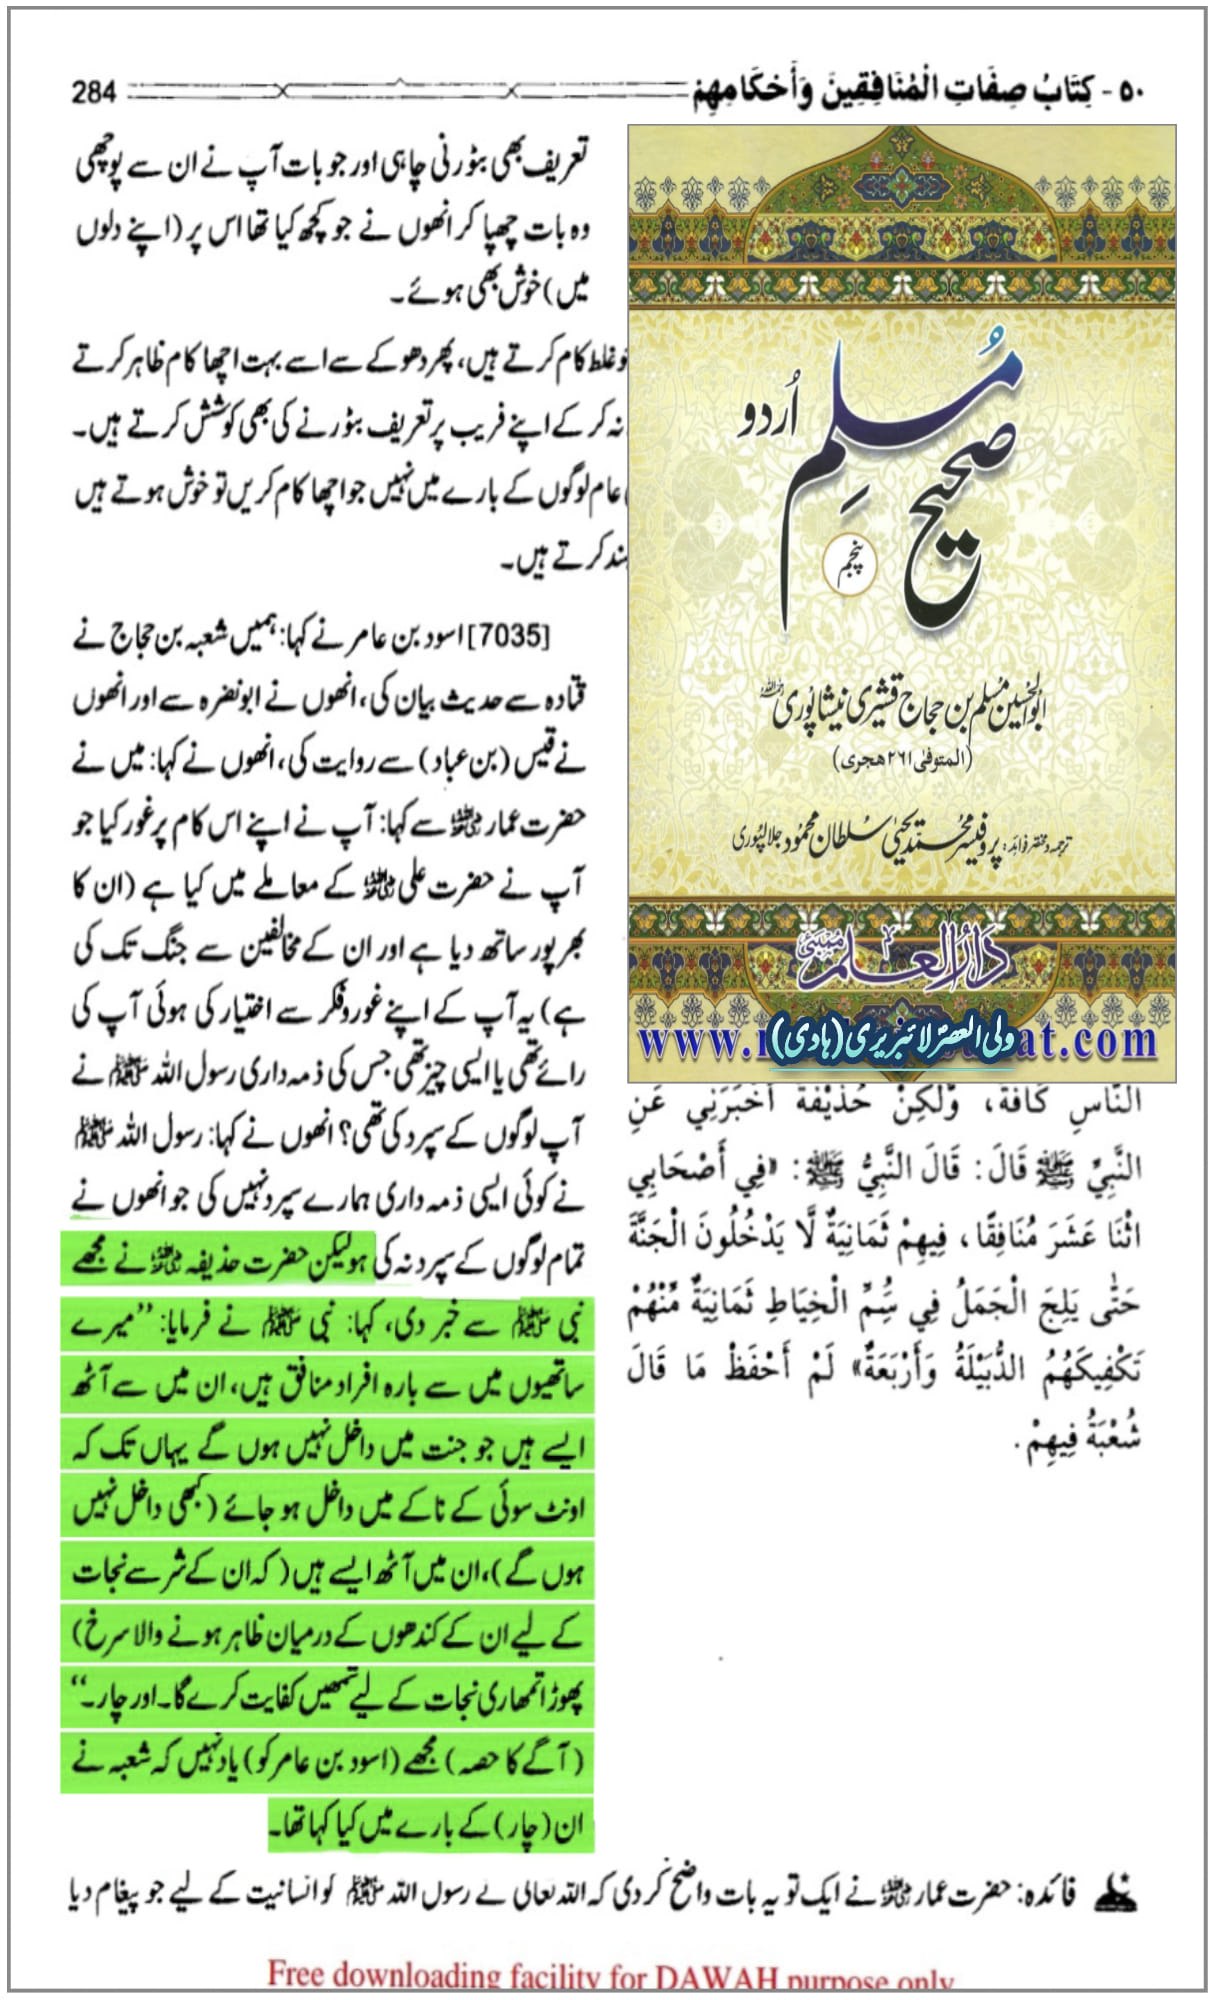 ۵۰ - كِتَابُ صِفَاتِ الْمُنَافِقِينَ وَأَحْكَامِهِمْ
284
تعریف بھی بٹورنی چاہی اور جو بات آپ نے ان سے پوچھی
وہ بات چھپا کر انھوں نے جو کچھ کیا تھا اس پر (اپنے دلوں
میں) خوش بھی ہوئے۔
غلط کام کرتے ہیں، پھر دھوکے سے اسے بہت اچھا کام ظاہر کرتے
نہ کر کے اپنے فریب پر تعریف بٹورنے کی بھی کوشش کرتے ہیں۔
عام لوگوں کے بارے میں نہیں جو اچھا کام کریں تو خوش ہوتے ہیں
کرتے ہیں۔
[7035] اسود بن عامر نے کہا: ہمیں شعبہ بن حجاج نے
قتادہ سے حدیث بیان کی، انھوں نے ابونضرہ سے اور انھوں
نے قیس (بن عباد) سے روایت کی، انھوں نے کہا: میں نے
حضرت عمار رضی اللہ عنہ سے کہا: آپ نے اپنے اس کام پر غور کیا جو
آپ نے حضرت علی رضی اللہ عنہ کے معاملے میں کیا ہے (ان کا
بھرپور ساتھ دیا ہے اور ان کے مخالفین سے جنگ تک کی
ہے) یہ آپ کے اپنے غور و فکر سے اختیار کی ہوئی آپ کی
رائے تھی یا ایسی چیز تھی جس کی ذمہ داری رسول اللہ ﷺ نے
آپ لوگوں کے سپرد کی تھی؟ انھوں نے کہا: رسول اللہ ﷺ
نے کوئی ایسی ذمہ داری ہمارے سپرد نہیں کی جو انھوں نے
تمام لوگوں کے سپرد نہ کی ہو لیکن حضرت حذیفہ رضی اللہ عنہ نے مجھے
نبی ﷺ سے خبر دی، کہا: نبی ﷺ نے فرمایا: ”میرے
ساتھیوں میں سے بارہ افراد منافق ہیں، ان میں سے آٹھ
ایسے ہیں جو جنت میں داخل نہیں ہوں گے یہاں تک کہ
اونٹ سوئی کے ناکے میں داخل ہو جائے (کبھی داخل نہیں
ہوں گے)، ان میں آٹھ ایسے ہیں (کہ ان کے شر سے نجات
کے لیے ان کے کندھوں کے درمیان ظاہر ہونے والا سرخ)
پھوڑا تمھاری نجات کے لیے تمھیں کفایت کرے گا۔ اور چار۔“
(آگے کا حصہ) مجھے (اسود بن عامر کو) یاد نہیں کہ شعبہ نے
ان (چار) کے بارے میں کیا کہا تھا۔
صحیح مسلم اُردو
پنجم
ابوالحسین مسلم بن حجاج قشیری نیشاپوری رحمہ اللہ
(المتوفی ۲۶۱ ہجری)
ترجمہ و مختصر فوائد: پروفیسر محمد یحیٰی سلطان محمود جلالپوری
دارالعلم ممبئی
www.
at.com
ولی العصر لائبریری (ہادی)
النَّاسِ كَافَّةً، وَلٰكِنْ حُذَيْفَةُ أَخْبَرَنِي عَنِ
النَّبِيِّ ﷺ قَالَ: قَالَ النَّبِيُّ ﷺ: «فِي أَصْحَابِي
اثْنَا عَشَرَ مُنَافِقًا، فِيهِمْ ثَمَانِيَةٌ لَّا يَدْخُلُونَ الْجَنَّةَ
حَتّٰى يَلِجَ الْجَمَلُ فِي سَمِّ الْخِيَاطِ ثَمَانِيَةٌ مِّنْهُمْ
تَكْفِيكَهُمُ الدُّبَيْلَةُ وَأَرْبَعَةٌ» لَمْ أَحْفَظْ مَا قَالَ
شُعْبَةُ فِيهِمْ.
فائدہ: حضرت عمار رضی اللہ عنہ نے ایک تو یہ بات واضح کر دی کہ اللہ تعالی نے رسول اللہ ﷺ کو انسانیت کے لیے جو پیغام دیا
Free downloading facility for DAWAH purpose only